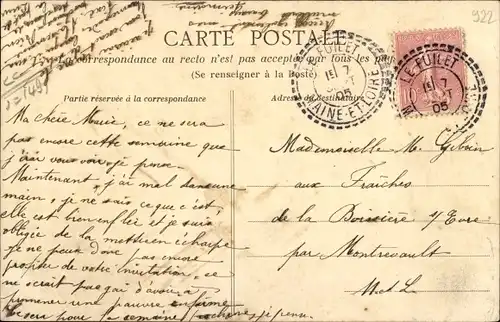 922
CARTE POSTALE
La correspondance au recto n'est pas acceptée par tous les pays
(Se renseigner à la Poste)
Partie réservée à la correspondance
Adresse du destinataire
LE FUILET
7
05
MAINE-ET-LOIRE
LE FUILET
7
05
Ma chère Marie, ce ne sera
pas encore cette semaine que
j'irai vous voir je pense
Maintenant j'ai mal dans une
main, je ne sais ce que c'est,
elle est bien enflée et je suis
obligée de la mettre en écharpe
je ne peux donc pas encore
profiter de votre invitation, ce
ne serait pas gai d'avoir à
promener une pauvre infirme
sera pour la semaine prochaine, je pense.
Mademoiselle M.
aux Fraîches
de la Boissière s/ Evre
par Montrevault
M et L